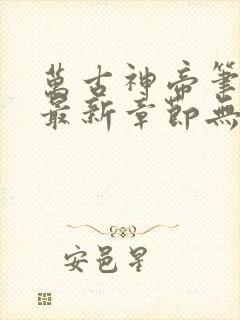 萬古神帝筆
最新章節無
安邑星